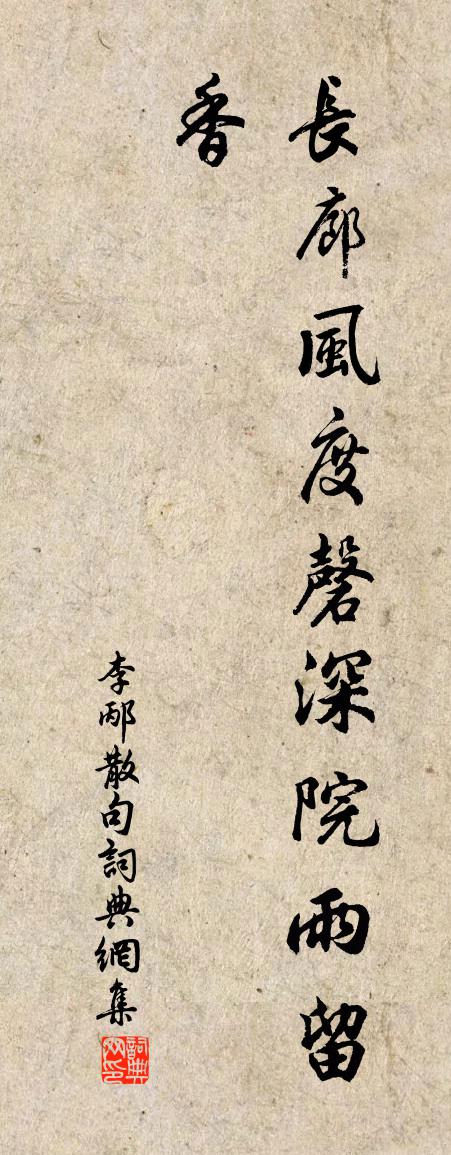 長廊風度磬深院雨留
香
李邴散句詞典網集
詞典网印